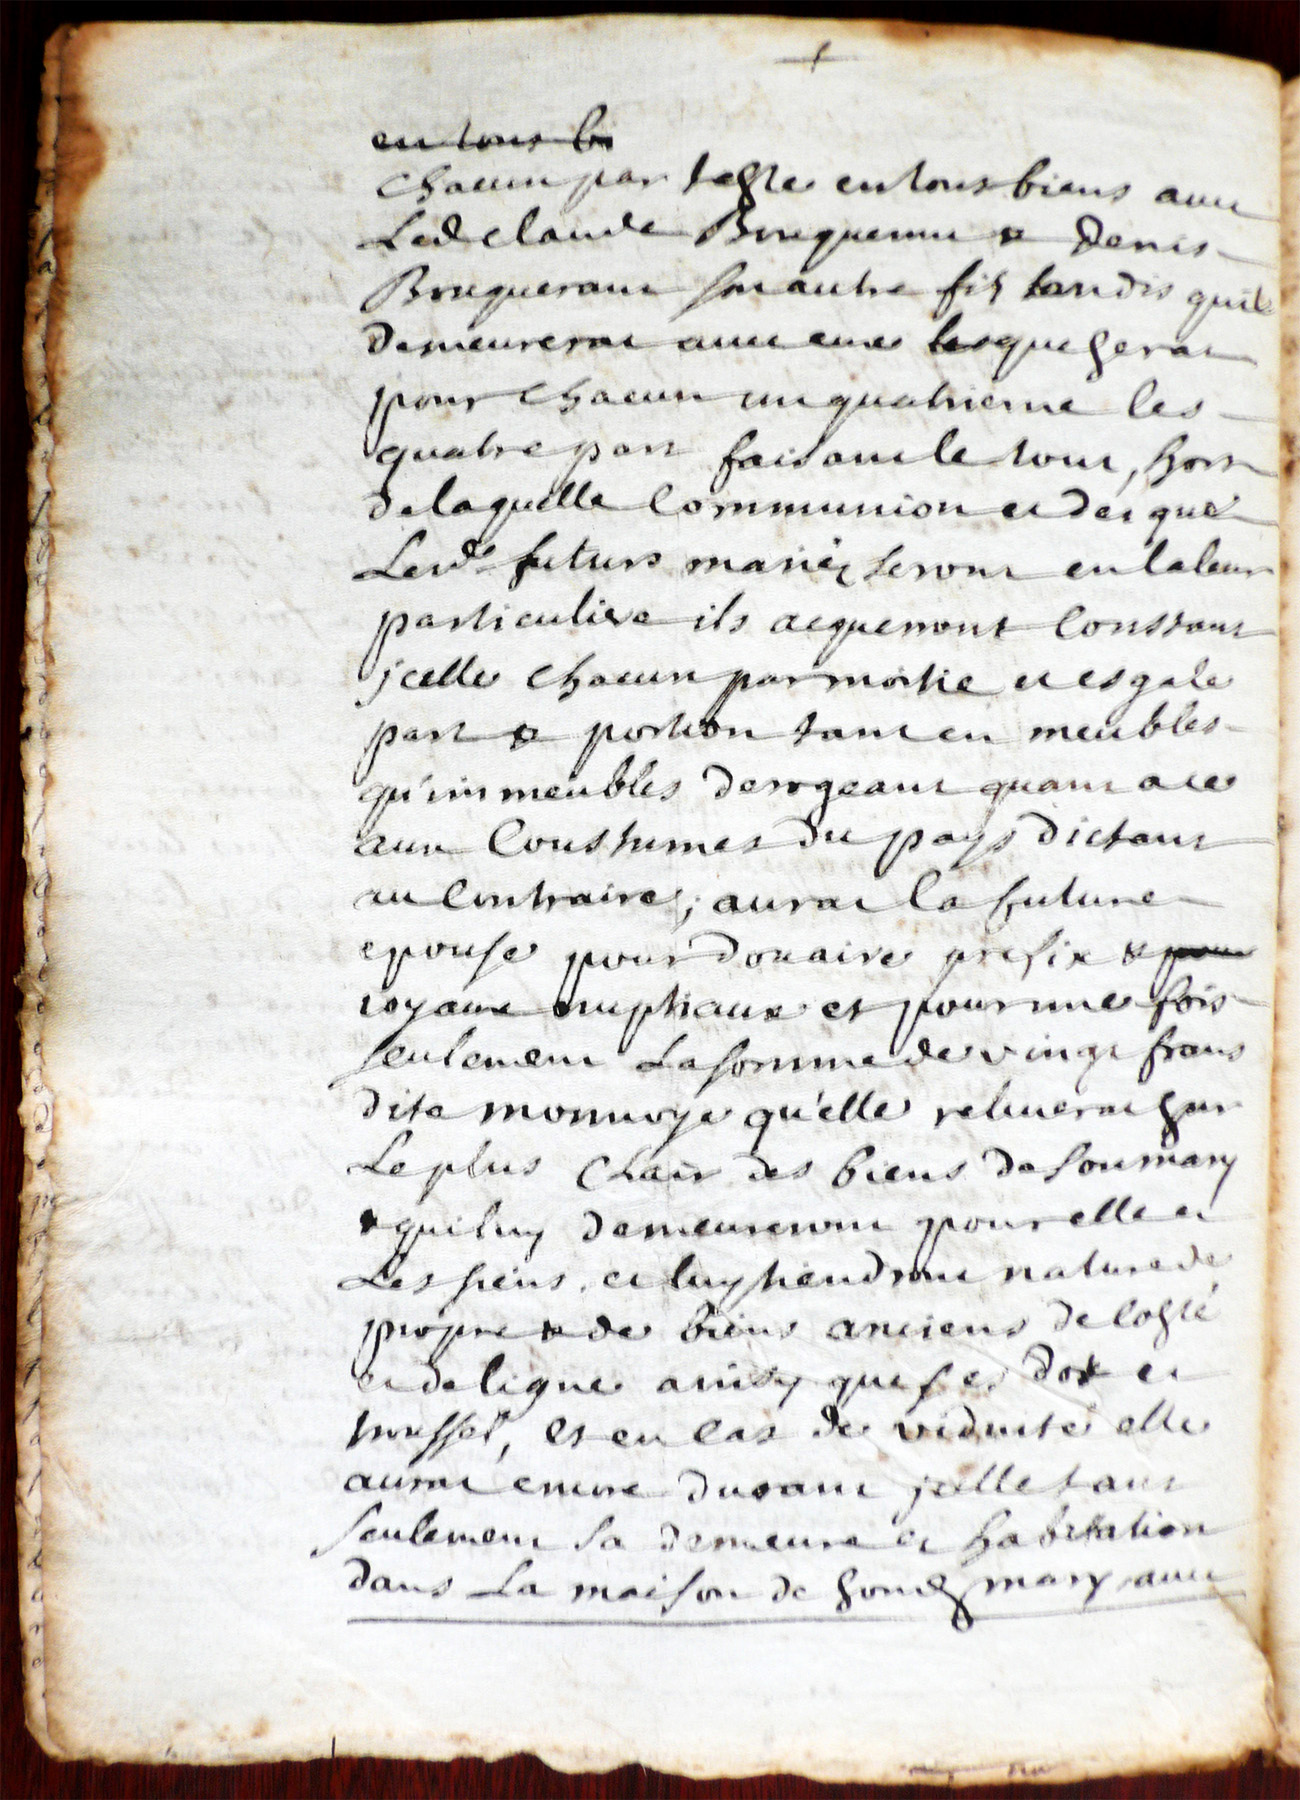 en tous bi
chacun par teste en tous biens avec
Led Claude Bruquerant & Denis
Bruquerant son autre fils tandis quils
demeureront avec eux lesquels seront
pour chacun un quatrieme les
quatre part faisant le tout, hors
de laquelle Communion et des que
Lesds futurs mariez seront en
particuliere ils acquerront Constant
jcelle chacun par moitie et esgale
part & portion tant en meubles
qu'immeubles derogeant quant a ce
aux Coustumes du pays dictant
au Contraire; aurat la future
epouse pour douaire prefix & pour
joyaux nuptiaux et pour une fois
seulement La somme de vingt frans
dite monnoye qu'elle relevera sur
Le plus Clair des biens de son mary
& qui luy demeureront pour elle et
Les siens et luy tiendront nature de
propre & de biens anciens de costé
et de ligne ainsy que ses dot et
troussel, et en Cas de viduité elle
aurat encore durant jcelle tant
seulement sa demeure et habitation
dans La maison de sond mary avec